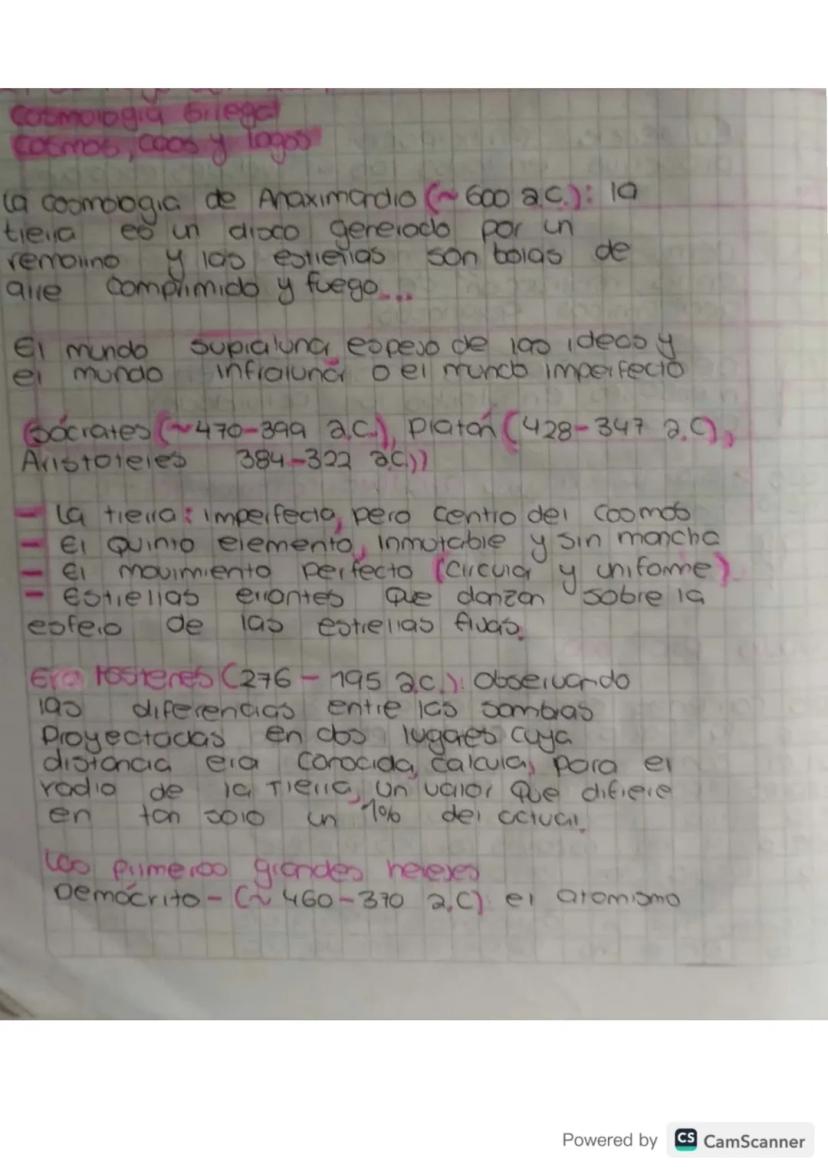 Cosmología Griega
Cosmos, caos y logos
La cosmología de Anaximandro (~ 600 a.C.): la
tierra es un disco generado por un
remolino y las estrellas son bolas de
aire comprimido y fuego...
El mundo supraluna, espejo de las ideas y
el mundo infralunar o el mundo imperfecto
(Sócrates (~470-399 a.C.), Platón (428-347 a.C),
Aristoteles 384-322 a.C))
- La tierra: imperfecta, pero centro del cosmos
- El quinto elemento, inmutable y sin mancha
- El movimiento perfecto (circular y uniforme)
- Estrellas errantes que danzan sobre la
esfera de las estrellas fijas.
Eratosteres (276 - 195 a.C.): Observando
las diferencias entre las sombras
Proyectadas en dos lugares cuya
distancia era conocida, calcula, para el
radio de la Tierra, un valor que difiere
en tan solo un 1% del actual.
Los primeros grandes herejes
Demócrito - (~ 460-370 a.C) el atomismo
Powered by CS CamScanner